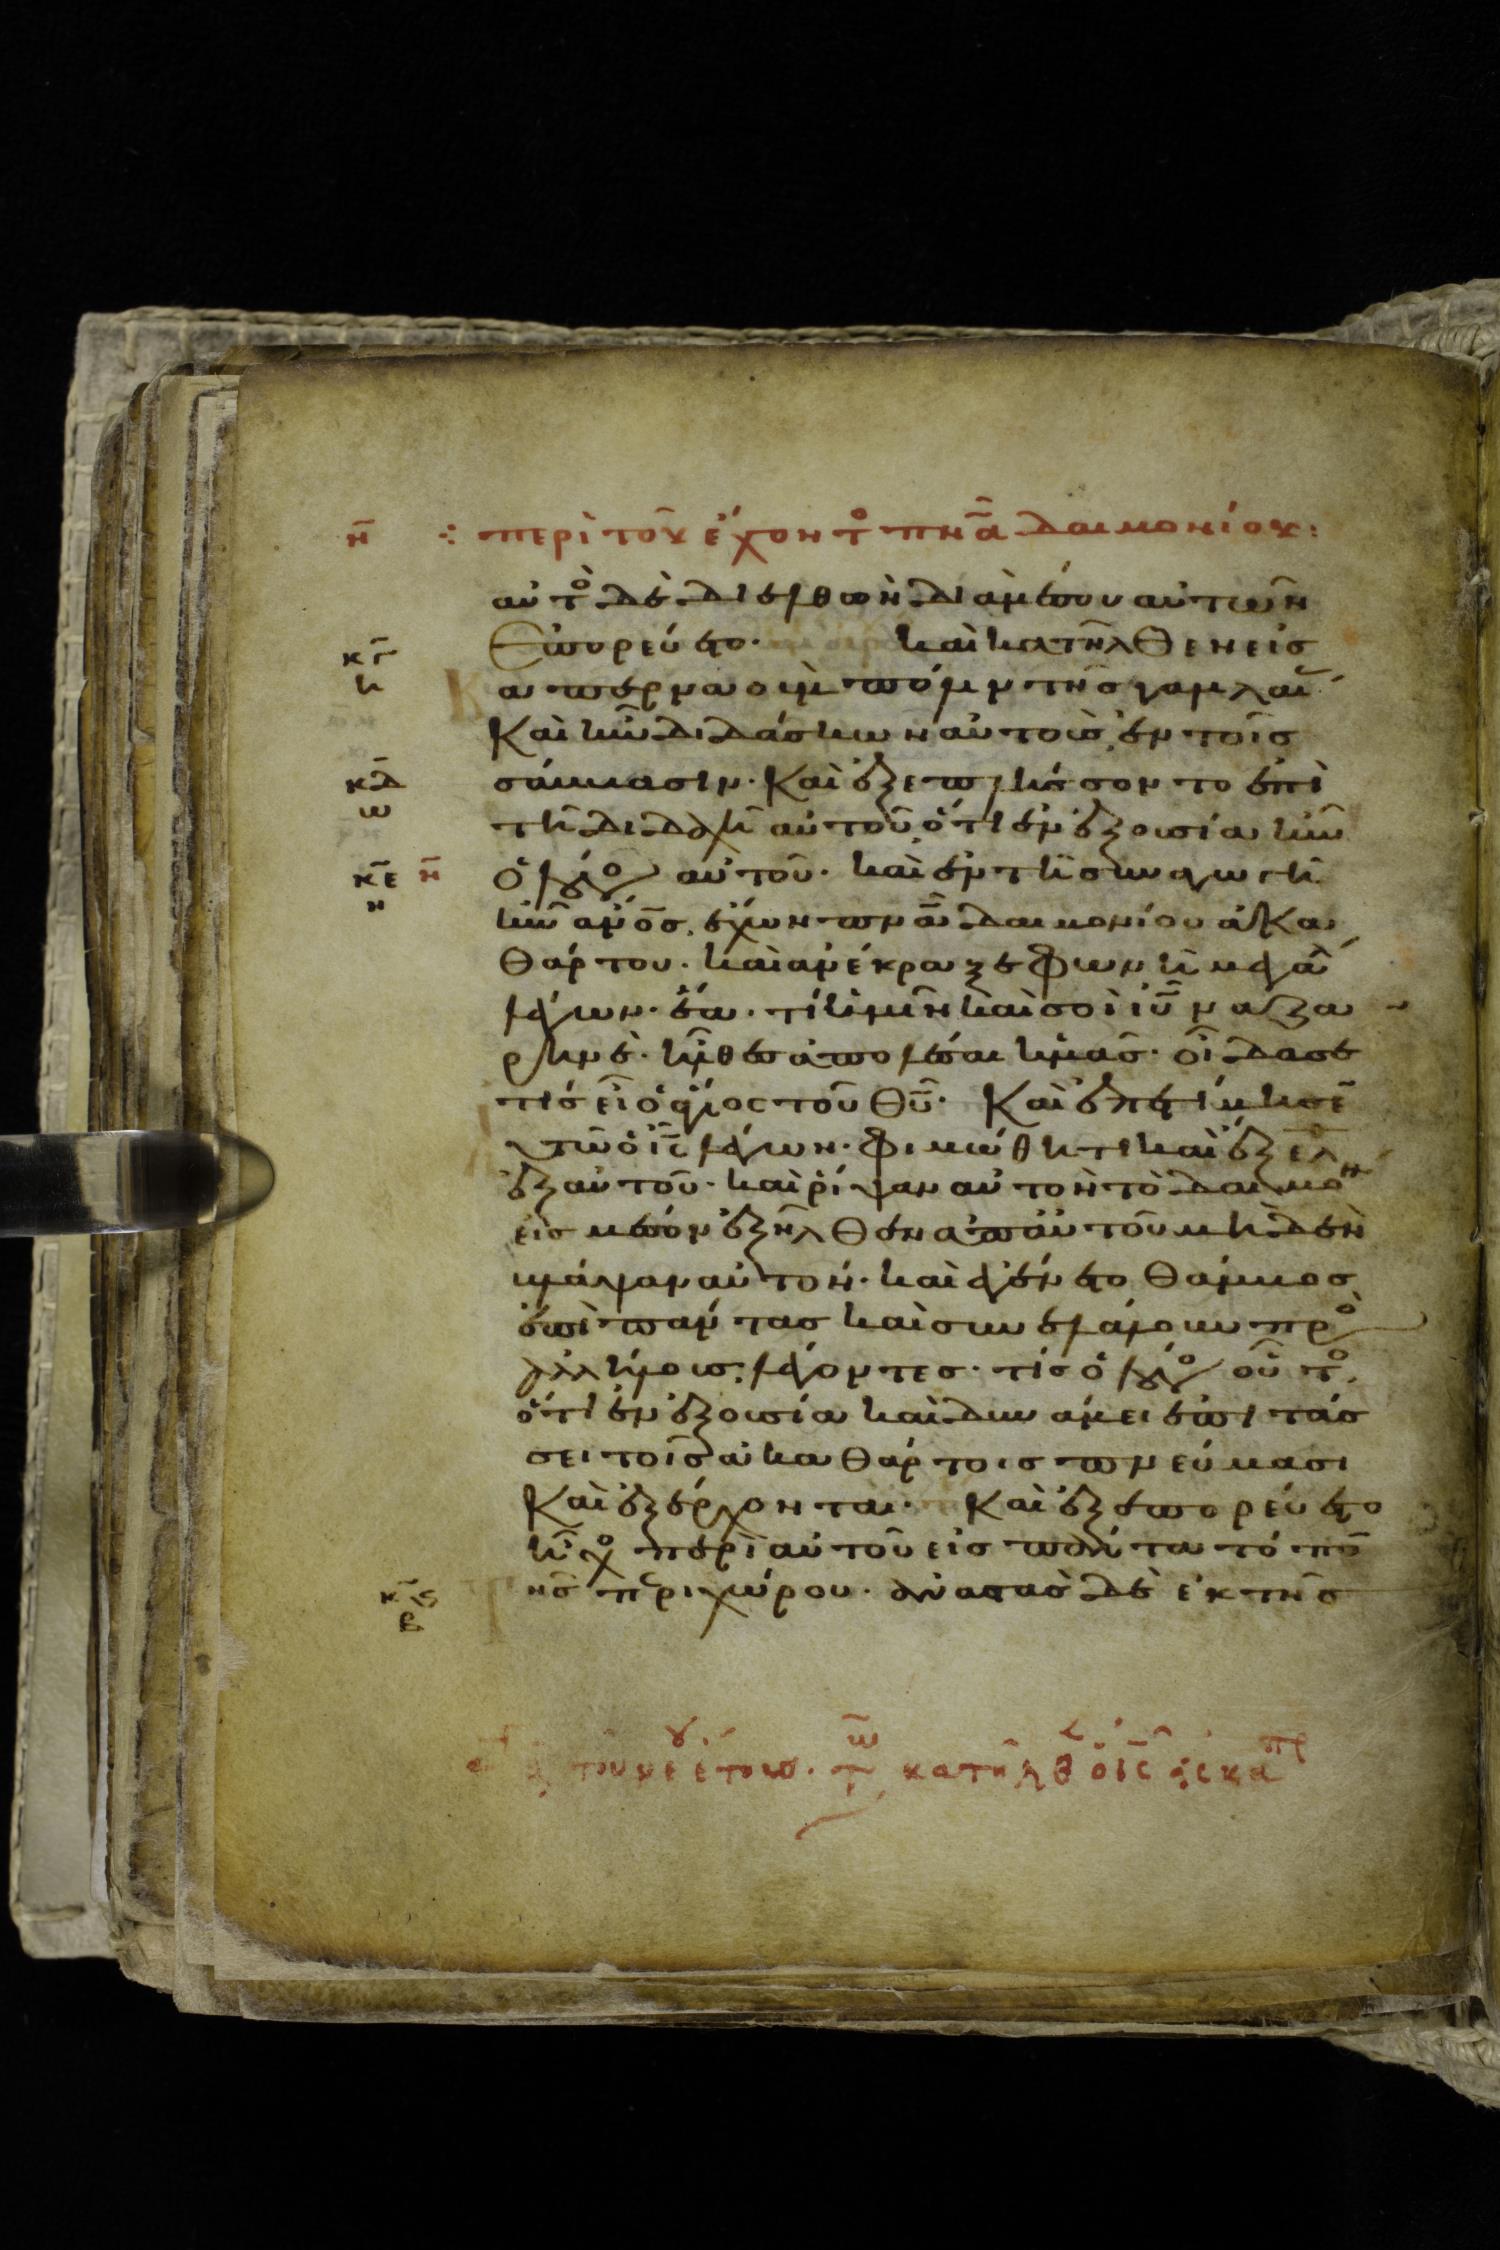 η̄ ⁘ περὶ τοῦ ἔχοντ̊ π̅ν̅α̅ δαιμονίου:
αὐτὸ̊ δὲ διελθὼν διὰ μέσου αὐτῶν
Ἐπορεύετο. καὶ κατῆλθεν εἰσ
καπερναοὺμ πόλιν τῆσ γαλιλαί
Καὶ ἦν διδάσκων αὐτοὺσ ἐν τοῖσ
σάββασιν. Καὶ ἐξεπλήσσοντο ἐπὶ
τῆ διδαχῆ αὐτοῦ, ὅτι ἐν ἐξουσία ἦν
ὁ λόγο αὐτοῦ. καὶ ἐν τῆ συναγωγῆ
ἦν α̅ν̅ο̅σ̅ ἔχων π̅ν̅α̅ δαιμονίου ἀκα
θάρτου. καὶ ἀνέκραξε φωνῆ μεγά
λέγων. ἔα. τί ἡμῖν καὶ σοὶ ι̅υ̅ ναζα
ρηνέ. ἦλθεσ ἀπολέσαι ἡμᾶσ. οἶδά σε
τίσ εἶ ὁ ἅγιος τοῦ θ̅υ̅. Καὶ ἐπετίμησε
αὐτῶ ὁ ι̅ς̅ λέγων. φιμώθητι καὶ ἔξελ
ἐξ αὐτοῦ. καὶ ῥίψαν αὐτὸν τὸ δαιμό
εἰσ μέσον ἐξῆλθεν ἀπ' αὐτοῦ μηδὲν
βλάψαν αὐτόν. καὶ ἐγένετο θάμβοσ
ἐπὶ πάντασ καὶ συνελάλουν πρὸ
ἀλλήλουσ, λέγοντεσ. τίσ ὁ λόγο οὗτο
ὅτι ἐν ἐξουσία καὶ δυνάμει ἐπιτάσ
σει τοῖσ ἀκαθάρτοισ πνεύμασι
Καὶ ἐξέρχονται. Καὶ ἐξεπορεύετο
ἦχο περὶ αὐτοῦ εἰσ πάντα τόπο
τῆσ περιχώρου. ἀναστὰσ δὲ ἐκ τῆσ
κ̅γ̅
η
κ̅δ̅
κ̅ε̅ η̄
κ̅ς̅
β